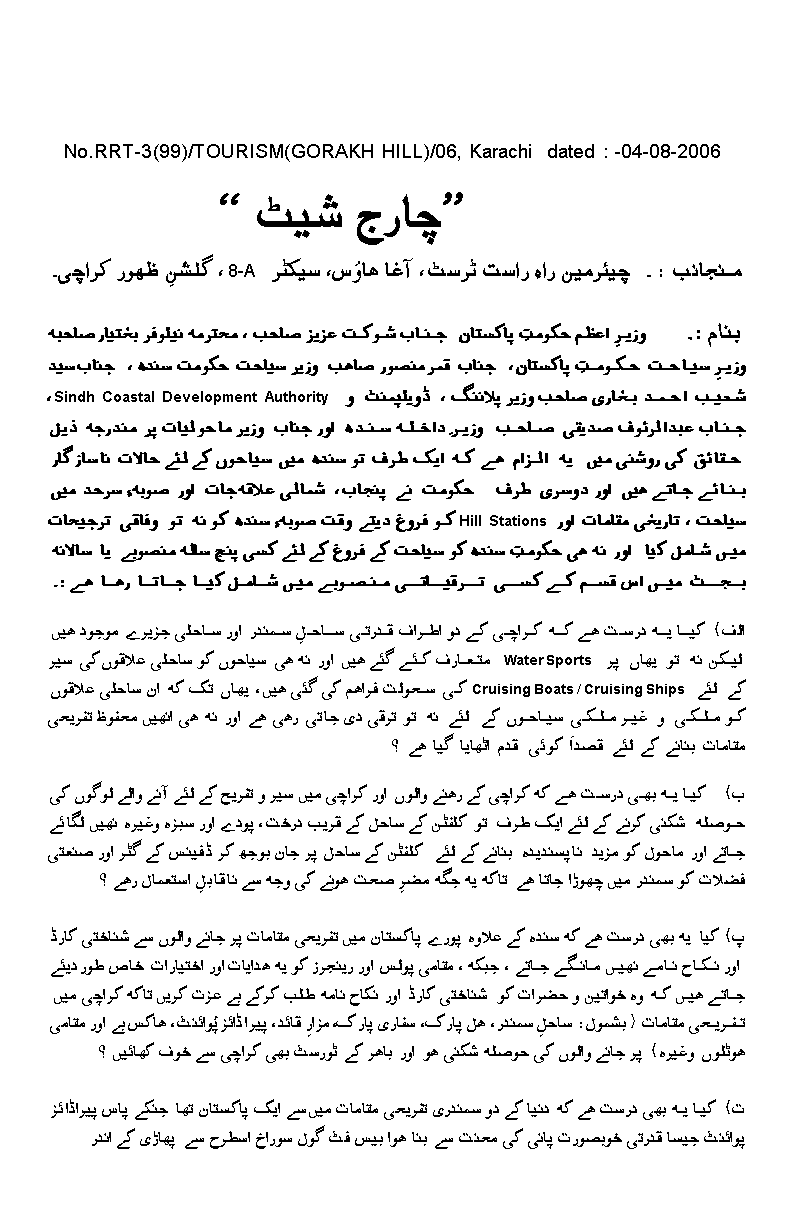 No.RRT-3(99)/TOURISM(GORAKH HILL)/06, Karachi dated : -04-08-2006
”چارج شیٹ “
منجانب :۔ چیئرمین راہِ راست ٹرسٹ، آغا ھاؤس، سیکٹر 8-A ، گلشنِ ظہور کراچی۔
بنام :۔ وزیرِ اعظم حکومتِ پاکستان جناب شوکت عزیز صاحب ، محترمہ نیلوفر بختیار صاحبہ
وزیرِ سیاحت حکومتِ پاکستان، جناب قمر منصور صاھب وزیر سیاحت حکومت سندھ ، جناب سید
شعیب احمد بخاری صاحب وزیر پلاننگ ، ڈویلپمنٹ و Sindh Coastal Development Authority ،
جناب عبدالرئوف صدیقی صاحب وزیرِ داخلہ سندھ اور جناب وزیر ماحولیات پر مندرجہ ذیل
حقائق کی روشنی میں یہ الزام ھے کہ ایک طرف تو سندھ میں سیاحوں کے لئے حالات ناسازگار
بنائے جاتے ھیں اور دوسری طرف حکومت نے پنجاب، شمالی علاقہجات اور صوبہء سرحد میں
سیاحت ، تاریخی مقامات اور Hill Stations کو فروغ دیتے وقت صوبہء سندھ کو نہ تو وفاقی ترجیحات
میں شامل کیا اور نہ ھی حکومتِ سندھ کو سیاحت کے فروغ کے لئے کسی پنج سالہ منصوبے یا سالانہ
بجٹ میں اس قسم کے کسی ترقیاتی منصوبے میں شامل کیا جاتا رھا ھے :۔
الف} کیا یہ درست ھے کہ کراچی کے دو اطراف قدرتی ساحلِ سمندر اور ساحلی جزیرے موجود ھیں
لیکن نہ تو یھاں پر Water Sports متعارف کئے گئے ھیں اور نہ ھی سیاحوں کو ساحلی علاقوں کی سیر
کے لئے Cruising Boats / Cruising Ships کی سحولت فراھم کی گئی ھیں، یھاں تک کہ ان ساحلی علاقوں
کو ملکی و غیر ملکی سیاحوں کے لئے نہ تو ترقی دی جاتی رھی ھے اور نہ ھی انھیں محفوظ تفریحی
مقامات بنانے کے لئے قصداً کوئی قدم اٹھایا گیا ھے ؟
ب} کیا یہ بھی درست ھے کہ کراچی کے رھنے والوں اور کراچی میں سیر و تفریح کے لئے آنے والے لوگوں کی
حوصلہ شکنی کرنے کے لئے ایک طرف تو کلفٹن کے ساحل کے قریب درخت، پودے اور سبزہ وغیرہ نھیں لگائے
جاتے اور ماحول کو مزید ناپسندیدہ بنانے کے لئے کلفٹن کے ساحل پر جان بوجھ کر ڈفینس کے گٹر اور صنعتی
فضلات کو سمندر میں چھوڑا جاتا ھے تاکہ یہ جگہ مضرِ صحت ھونے کی وجہ سے ناقابلِ استعمال رھے ؟
پ} کیا یہ بھی درست ھے کہ سندھ کے علاوہ پورے پاکستان میں تفریحی مقامات پر جانے والوں سے شناختی کارڈ
اور نکاح نامے نھیں مانگے جاتے ، جبکہ ، مقامی پولس اور رینجرز کو یہ ھدایات اور اختیارات خاص طور دیئے
جاتے ھیں کہ وہ خواتین و حضرات کو شناختی کارڈ اور نکاح نامہ طلب کرکے بے عزت کریں تاکہ کراچی میں
تفریحی مقامات { بشمول: ساحلِ سمندر، ھل پارک، سفاری پارک، مزارِ قائد، پیراڈائز پُوائنٹ، ھاکس بے اور مقامی
ھوٹلوں وغیرہ} پر جانے والوں کی حوصلہ شکنی ھو اور باھر کے ٹورسٹ بھی کراچی سے خوف کھائیں ؟
ت} کیا یہ بھی درست ھے کہ دنیا کے دو سمندری تفریحی مقامات میں سے ایک پاکستان تھا جنکے پاس پیراڈائز
پوائنٹ جیسا قدرتی خوبصورت پانی کی محنت سے بنا ھوا بیس فٹ گول سوراخ اسطرح سے پھاڑی کے اندر